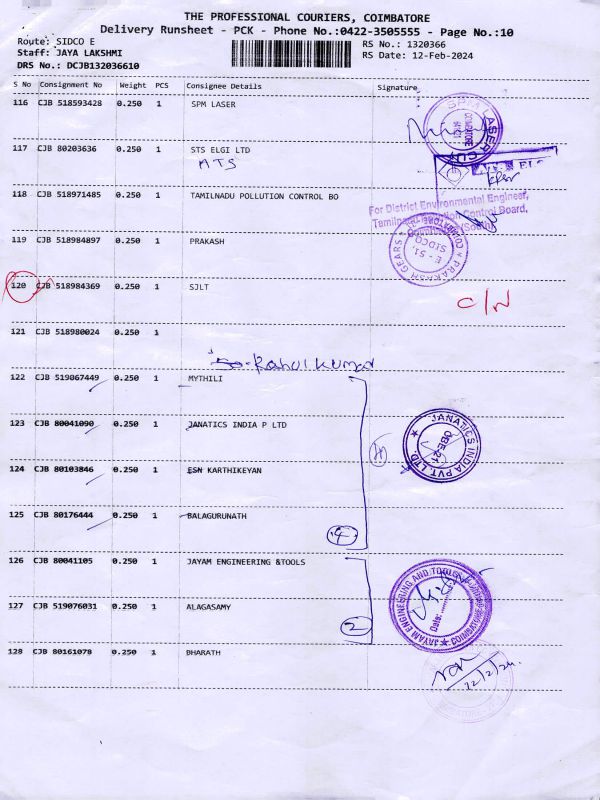 THE PROFESSIONAL COURIERS, COIMBATORE
Delivery Runsheet - PCK - Phone No.:0422-3505555 - Page No.:10
Route: SIDCO E
RS No.: 1320366
Staff: JAYA LAKSHMI
RS Date: 12-Feb-2024
DRS No.: DCJB132036610
S No Consignment No Weight PCS Consignee Details Signature
116 CJB 518593428 0.250 1 SPM LASER
SPM LASER CUT
117 CJB 80203636 0.250 1 STS ELGI LTD
ATS
118 CJB 518971485 0.250 1 TAMILNADU POLLUTION CONTROL BO
For District Environmental Engineer,
Control Board,
119 CJB 518984897 0.250 1 PRAKASH
PRAKASH GEARS
E - 51,
SIDCO,
120 CJB 518984369 0.250 1 SJLT
C/N
121 CJB 518980024 0.250 1
Rahul Kumar
122 CJB 519867449 0.250 1 MYTHILI
123 CJB 80041090 0.250 1 JANATICS INDIA P LTD
JANATICS INDIA PVT. LTD.
124 CJB 80103846 0.250 1 ESN KARTHIKEYAN
4
125 CJB 80176444 0.250 1 BALAGURUNATH
4
126 CJB 80041105 0.250 1 JAYAM ENGINEERING &TOOLS
JAYAM ENGINEERING AND TOOLS
Date:
127 CJB 519076031 0.250 1 ALAGASAMY
2
128 CJB 80161078 0.250 1 BHARATH
12/2/24